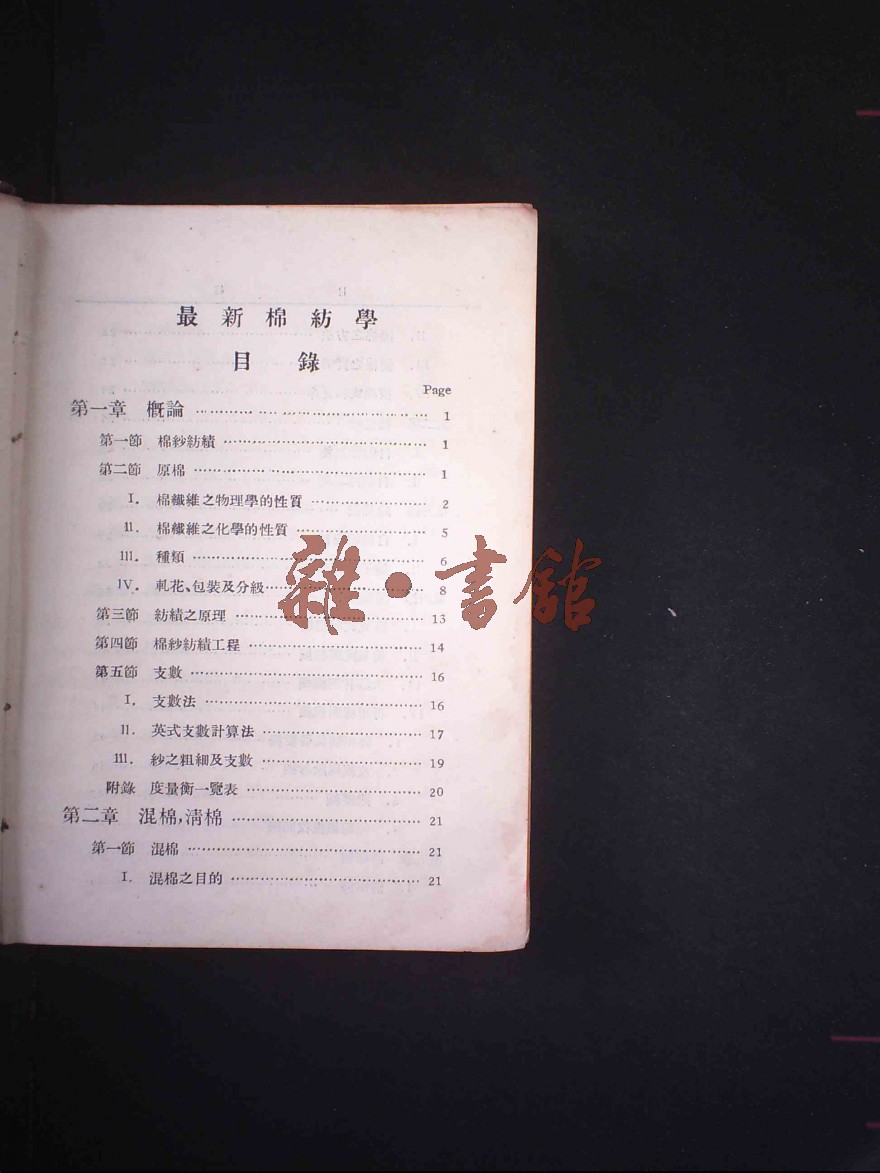 最新棉紡學
目錄
Page
第一章 概論 ………………………… 1
第一節 棉紗紡績 ………………………… 1
第二節 原棉 ………………………… 1
I. 棉纖維之物理學的性質 ……………… 2
II. 棉纖維之化學的性質 ……………… 5
III. 種類 ………………………… 6
IV. 軋花、包裝及分級 ……………… 8
第三節 紡績之原理 ……………………… 13
第四節 棉紗紡績工程 …………………… 14
第五節 支數 ………………………… 16
I. 支數法 ………………………… 16
II. 英式支數計算法 ……………… 17
III. 紗之粗細及支數 ……………… 19
附錄 度量衡一覽表 ……………………… 20
第二章 混棉,淸棉 ……………………… 21
第一節 混棉 ………………………… 21
I. 混棉之目的 ……………………… 21
雜·書館